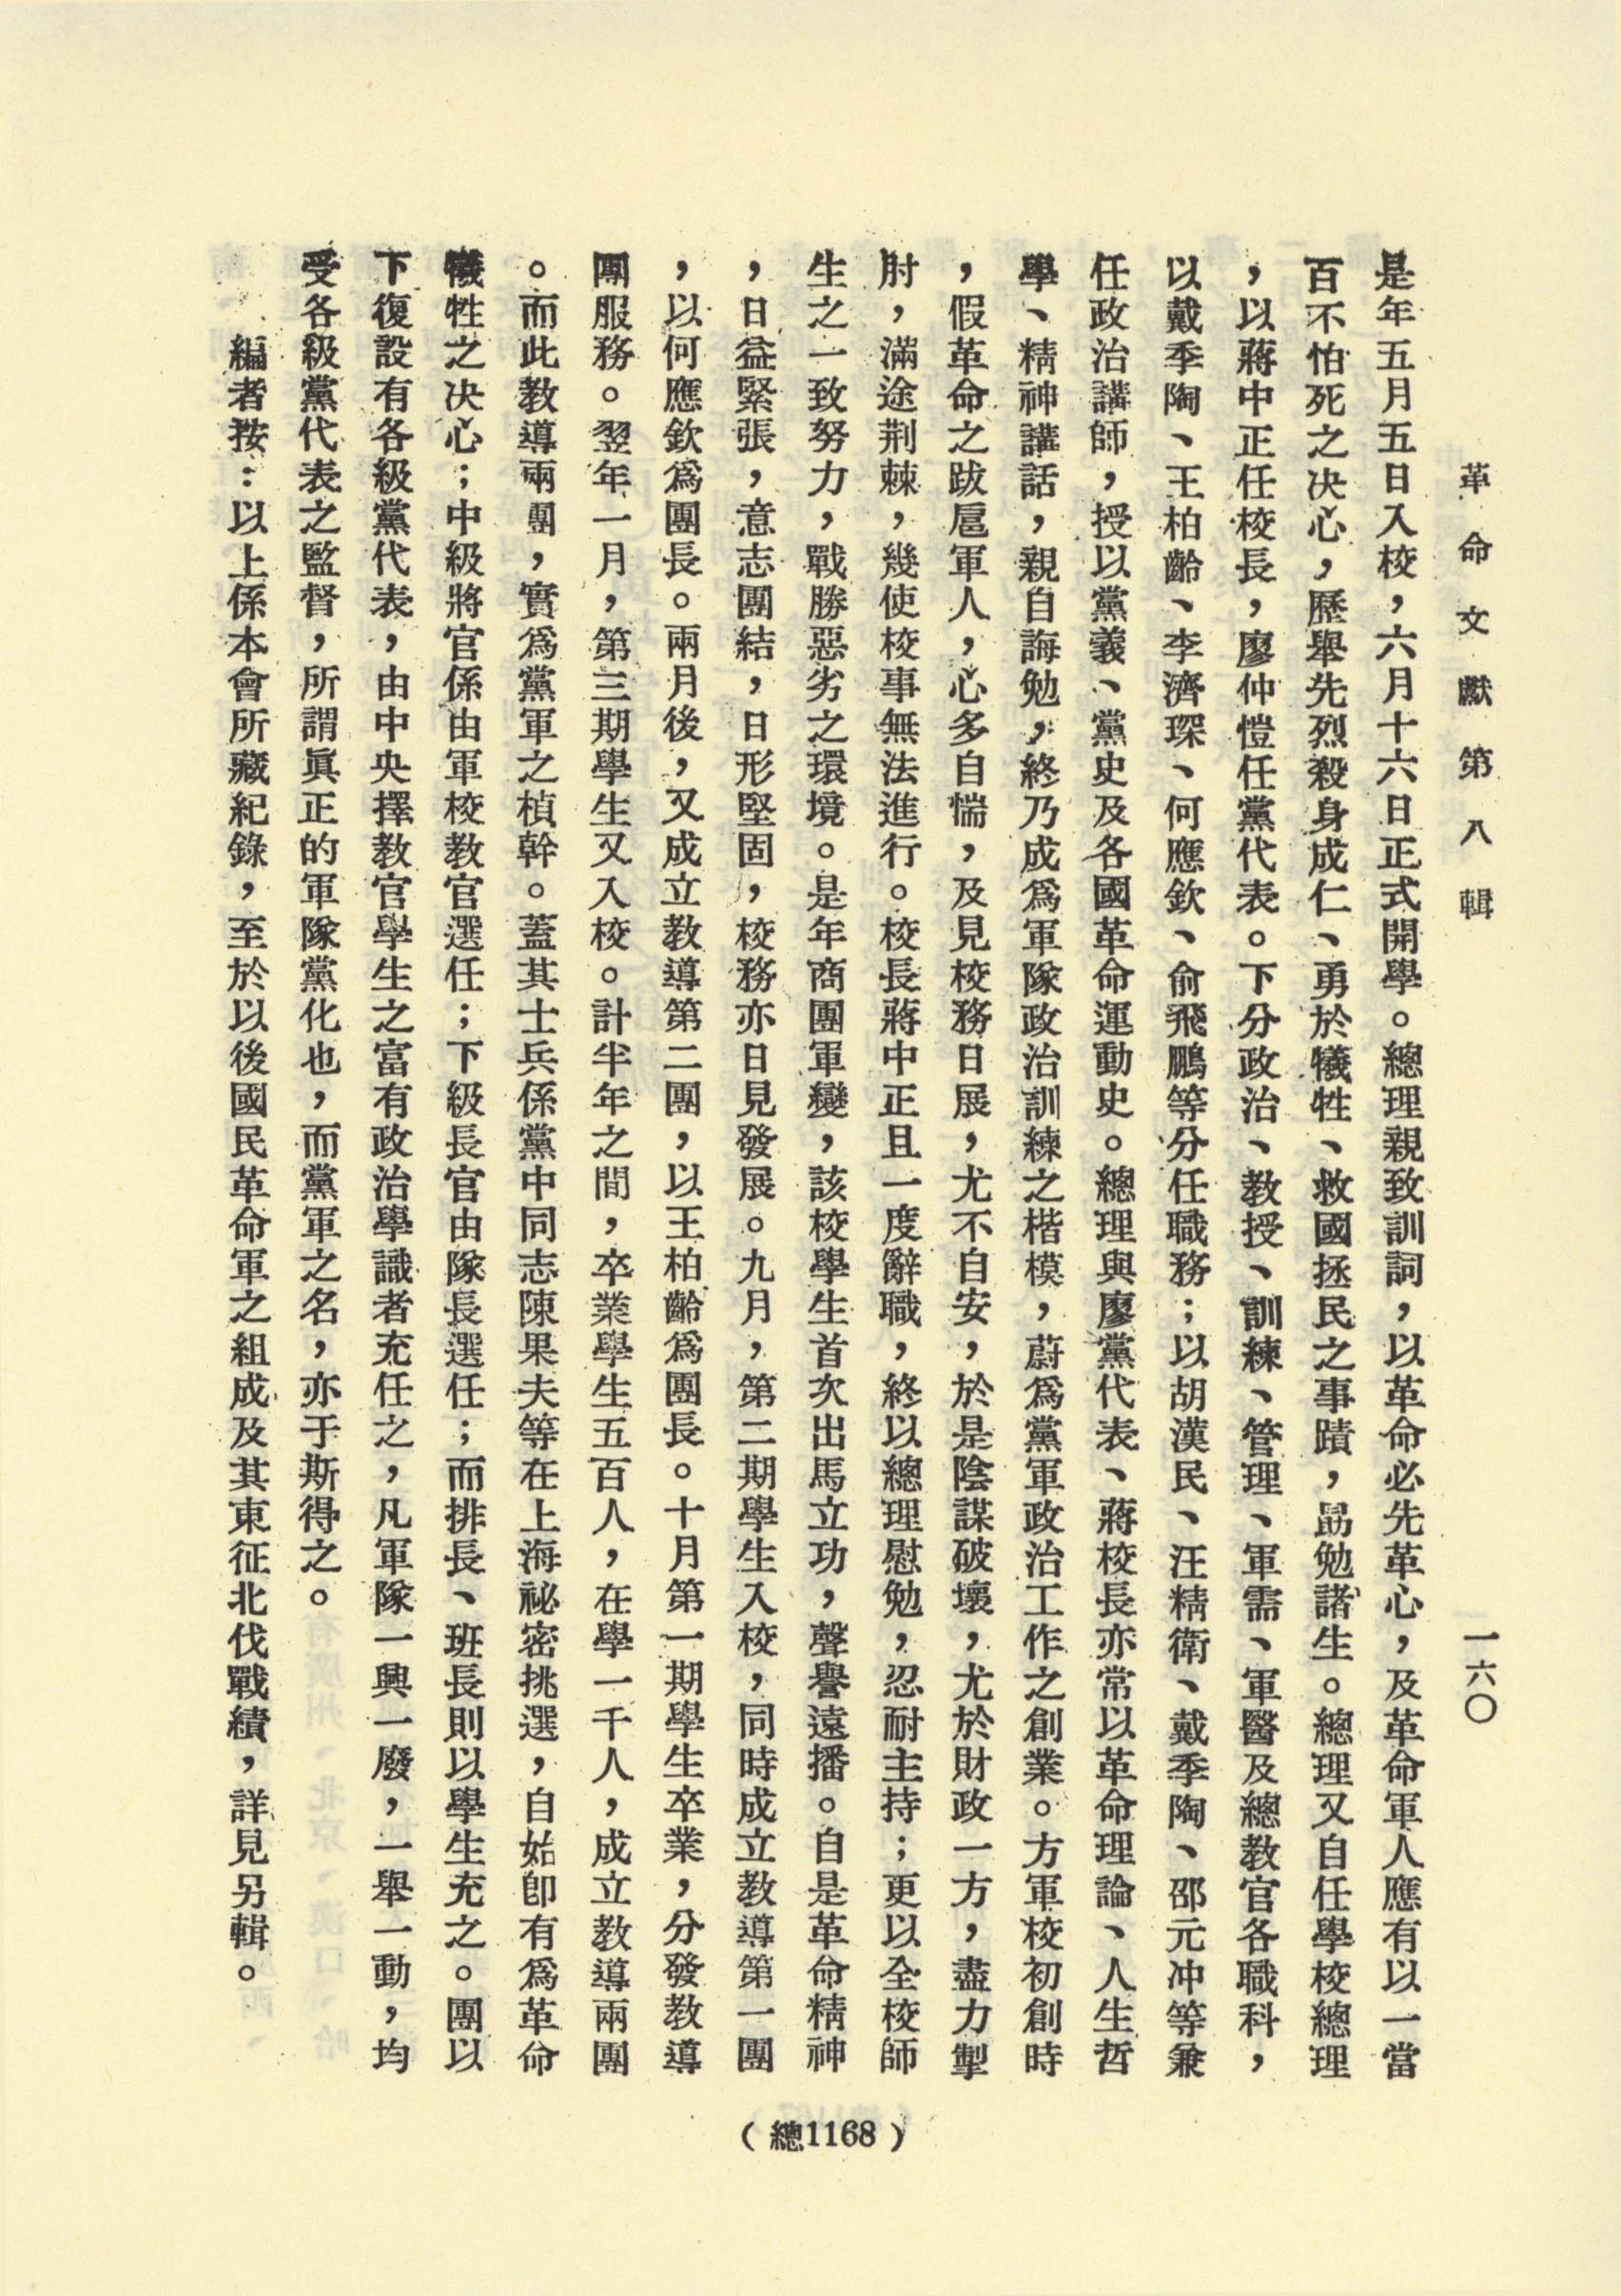 革命文獻第八輯
一六〇
是年五月五日入校，六月十六日正式開學。總理親致訓詞，以革命必先革心，及革命軍人應有以一當
百不怕死之決心，歷舉先烈殺身成仁、勇於犧牲、救國拯民之事蹟，勗勉諸生。總理又自任學校總理
，以蔣中正任校長，廖仲愷任黨代表。下分政治、教授、訓練、管理、軍需、軍醫及總教官各職科，
以戴季陶、王柏齡、李濟琛、何應欽、俞飛鵬等分任職務；以胡漢民、汪精衛、戴季陶、邵元冲等兼
任政治講師，授以黨義、黨史及各國革命運動史。總理與廖黨代表、蔣校長亦常以革命理論、人生哲
學、精神講話，親自誨勉，終乃成爲軍隊政治訓練之楷模，蔚爲黨軍政治工作之創業。方軍校初創時
，假革命之跋扈軍人，心多自惴，及見校務日展，尤不自安，於是陰謀破壞，尤於財政一方，盡力掣
肘，滿途荆棘，幾使校事無法進行。校長蔣中正且一度辭職，終以總理慰勉，忍耐主持；更以全校師
生之一致努力，戰勝惡劣之環境。是年商團軍變，該校學生首次出馬立功，聲譽遠播。自是革命精神
，日益緊張，意志團結，日形堅固，校務亦日見發展。九月，第二期學生入校，同時成立教導第一團
，以何應欽爲團長。兩月後，又成立教導第二團，以王柏齡爲團長。十月第一期學生卒業，分發教導
團服務。翌年一月，第三期學生又入校。計半年之間，卒業學生五百人，在學一千人，成立教導兩團
。而此教導兩團，實爲黨軍之楨幹。蓋其士兵係黨中同志陳果夫等在上海祕密挑選，自始卽有爲革命
犧牲之決心；中級將官係由軍校教官選任；下級長官由隊長選任；而排長、班長則以學生充之。團以
下復設有各級黨代表，由中央擇教官學生之富有政治學識者充任之，凡軍隊一興一廢，一舉一動，均
受各級黨代表之監督，所謂眞正的軍隊黨化也，而黨軍之名，亦于斯得之。
編者按：以上係本會所藏紀錄，至於以後國民革命軍之組成及其東征北伐戰績，詳見另輯。
（總1168）